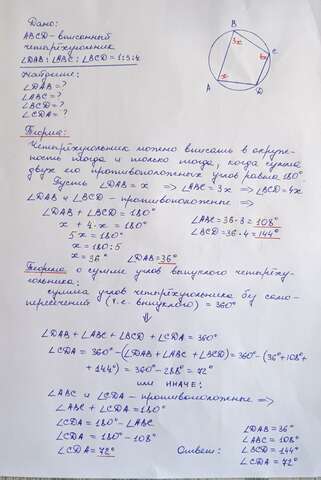 Дано:
ABCD - вписанный
четырёхугольник
∠DAB : ∠ABC : ∠BCD = 1:3:4
Найти:
∠DAB = ?
∠ABC = ?
∠BCD = ?
∠CDA = ?
B
3x
C
x
A
D
Теорема:
Четырёхугольник можно вписать в окруж-
ность тогда и только тогда, когда сумма
двух его противоположных углов равна 180°
Пусть ∠DAB = x ⇒ ∠ABC = 3x ⇒ ∠BCD = 4x
∠DAB и ∠BCD - противоположные ⇒
∠DAB + ∠BCD = 180°
x + 4·x = 180°
5x = 180°
x = 180:5
x = 36°
∠DAB = 36°
∠ABC = 36·3 = 108°
∠BCD = 36·4 = 144°
Теорема о сумме углов выпуклого четырёху-
гольника:
сумма углов четырёхугольника без само-
пересечений (т.е. выпуклого) = 360°
⇓
∠DAB + ∠ABC + ∠BCD + ∠CDA = 360°
∠CDA = 360° - (∠DAB + ∠ABC + ∠BCD) = 360° - (36° + 108° +
+ 144°) = 360° - 288° = 72°
или иначе:
∠ABC и ∠CDA - противоположные ⇒
∠ABC + ∠CDA = 180°
∠CDA = 180° - ∠ABC
∠CDA = 180° - 108°
∠CDA = 72°
Ответ:
∠DAB = 36°
∠ABC = 108°
∠BCD = 144°
∠CDA = 72°